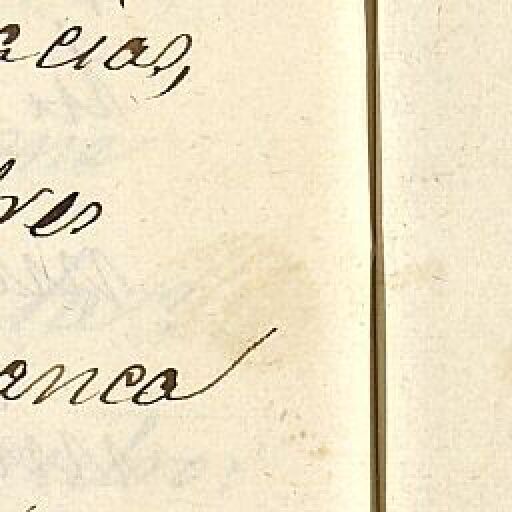 acias,
res
anca